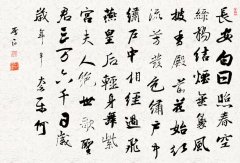 長安白日照春空
綠楊結煙垂裊風
披香殿前花始紅
流芳發色繡戶中
繡戶中相經過飛
燕皇后輕身舞紫
宮夫人絕世歌聖
君三萬六千日歲
歲年年奈樂何